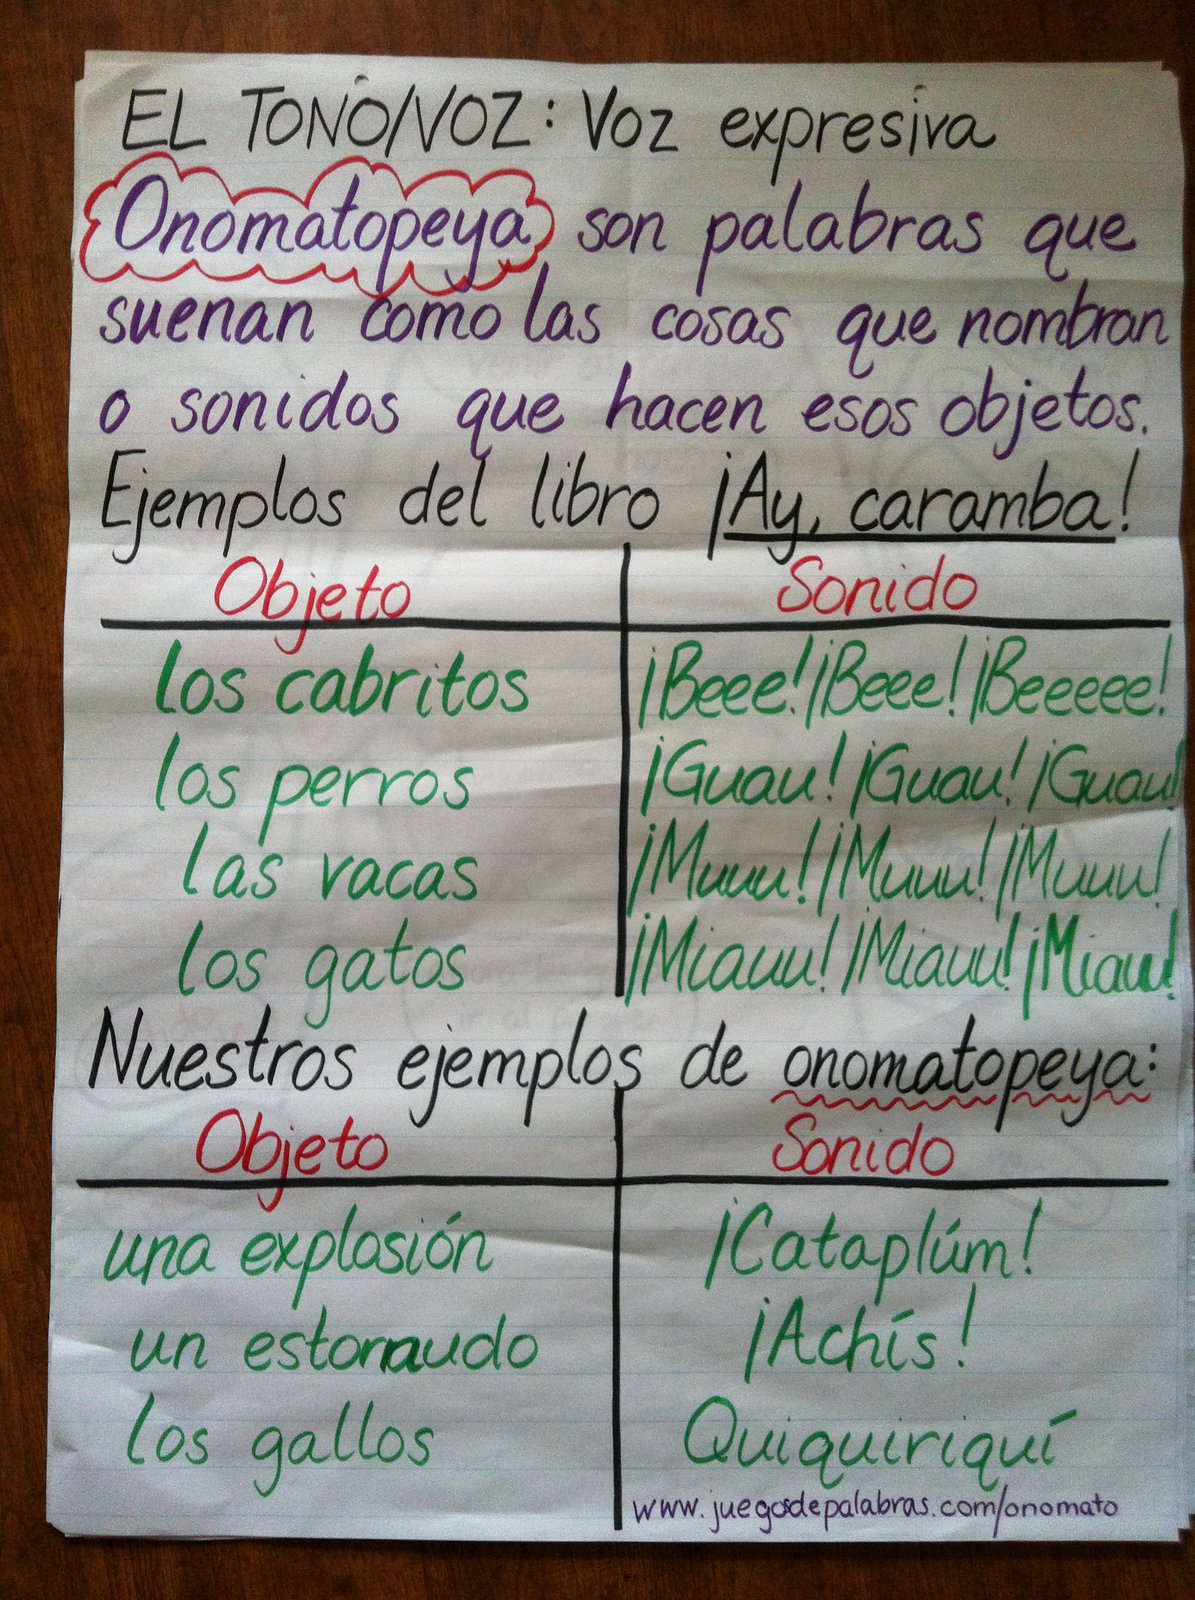 EL TONO/VOZ: Voz expresiva
Onomatopeya son palabras que
suenan como las cosas que nombran
o sonidos que hacen esos objetos.
Ejemplos del libro ¡Ay, caramba!
Objeto Sonido
los cabritos ¡Beee! ¡Beee! ¡Beeeee!
los perros ¡Guau! ¡Guau! ¡Guau!
las vacas ¡Muuu! ¡Muuu! ¡Muuu!
los gatos ¡Miauu! ¡Miauu! ¡Miau!
Nuestros ejemplos de onomatopeya:
Objeto Sonido
una explosión ¡Cataplúm!
un estornaudo ¡Achís!
los gallos Quiquiriquí
www.juegosdepalabras.com/onomato